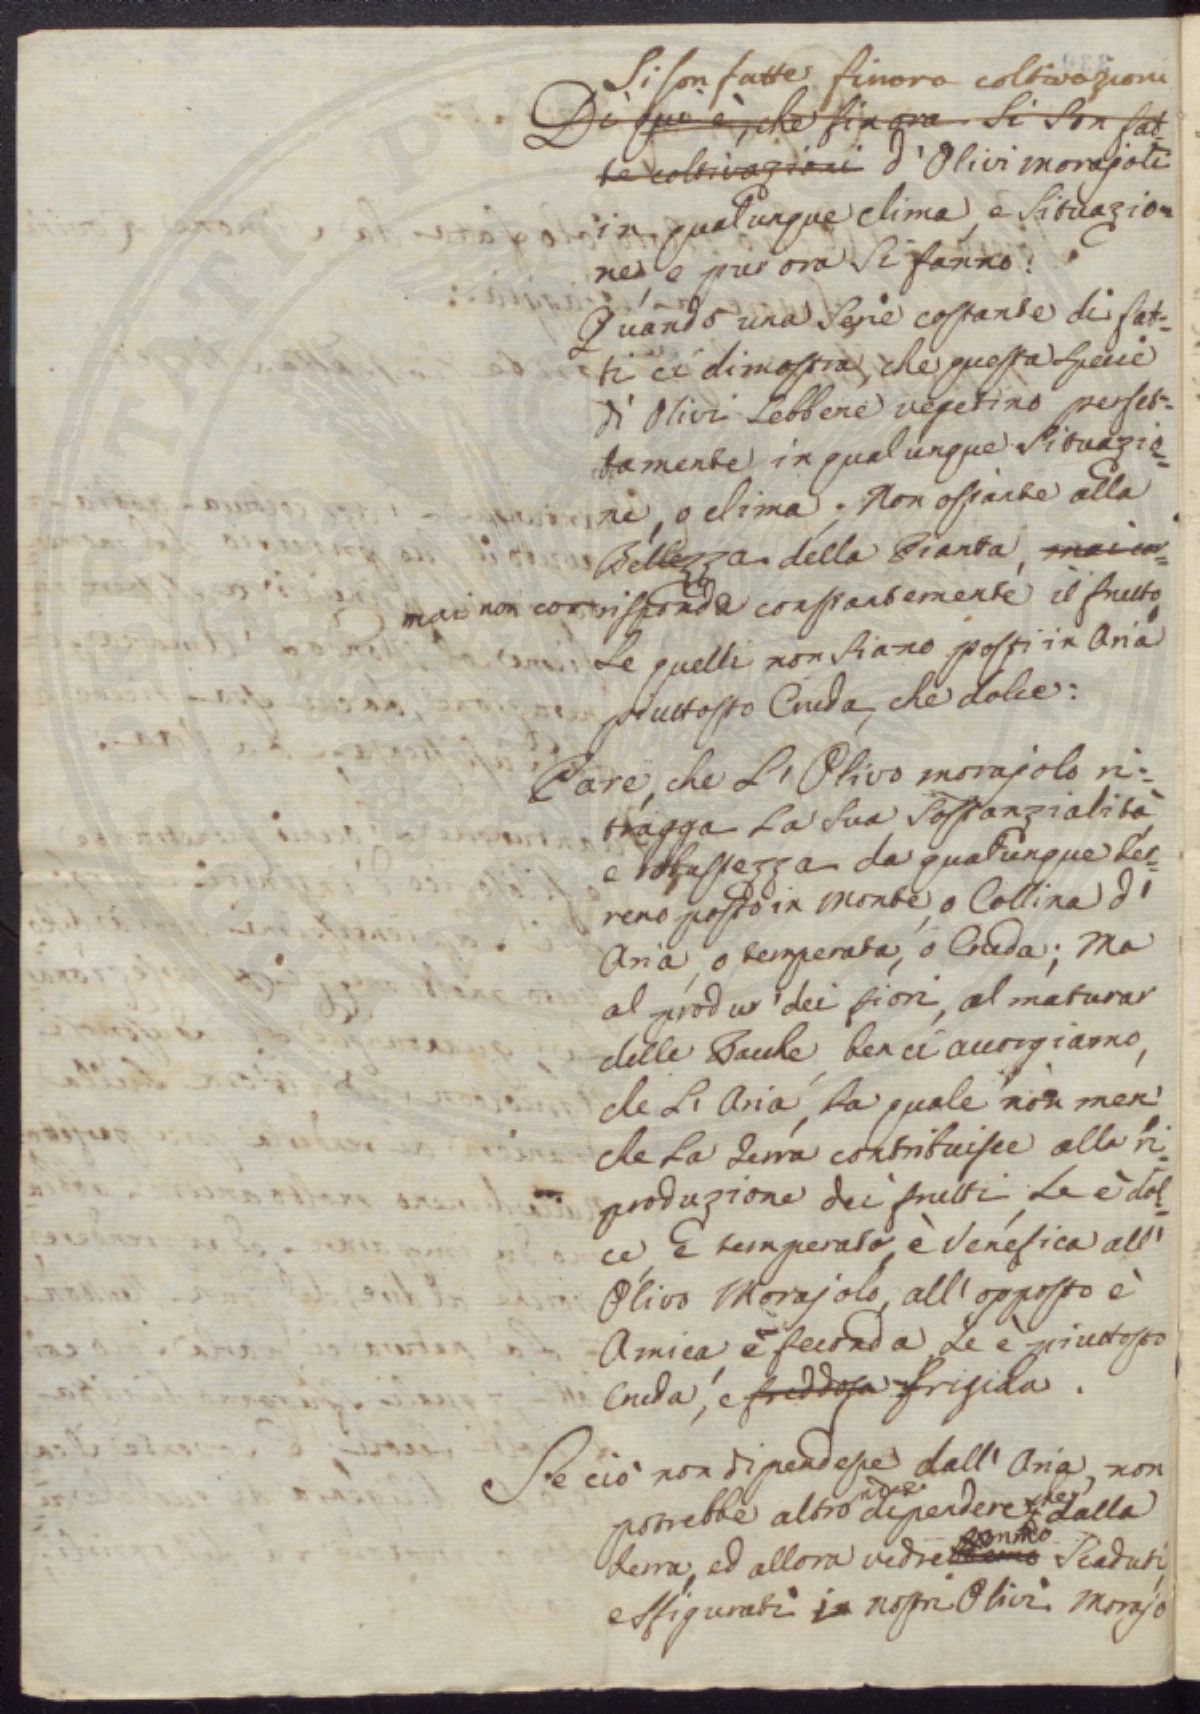 Si son fatte finora coltivazioni
Di quì è, che finora si son fat-
te coltivazioni d'Olivi morajoli
in qualunque clima, e situazio-
ne, e pur ora si fanno:
Quando una serie costante di fat-
ti ci dimostra, che questa specie
di Olivi sebbene vegetino perfet-
tamente in qualunque situazio-
ne, o clima; Non ostante alla
Bellezza della Pianta, mai cor-
mai non corrisponde constantemente il frutto
se quelli non siano posti in Aria
piuttosto Cruda, che dolce:
Pare, che L'Olivo morajolo ri-
tragga la sua sostanzialità,
e robustezza da qualunque ter-
reno posto in Monte, o Collina d'
Aria, o temperata, o Cruda; Ma
al produr dei fiori, al maturar
delle Bacche ben ci accorgiamo,
che L'Aria, la quale non men
che la Terra contribuisce alla ri-
produzione dei frutti, se è dol-
ce, e temperata, è Venefica all'
Olivo Morajolo, all'opposto è
Amica, e feconda se è piuttosto
Cruda, e freddosa frigida.
Se ciò non dipendesse dall'Aria, non
potrebbe altronde dipendere, che dalla
terra, ed allora vedremmo scaduti,
e sfigurati i nostri Olivi Morajo